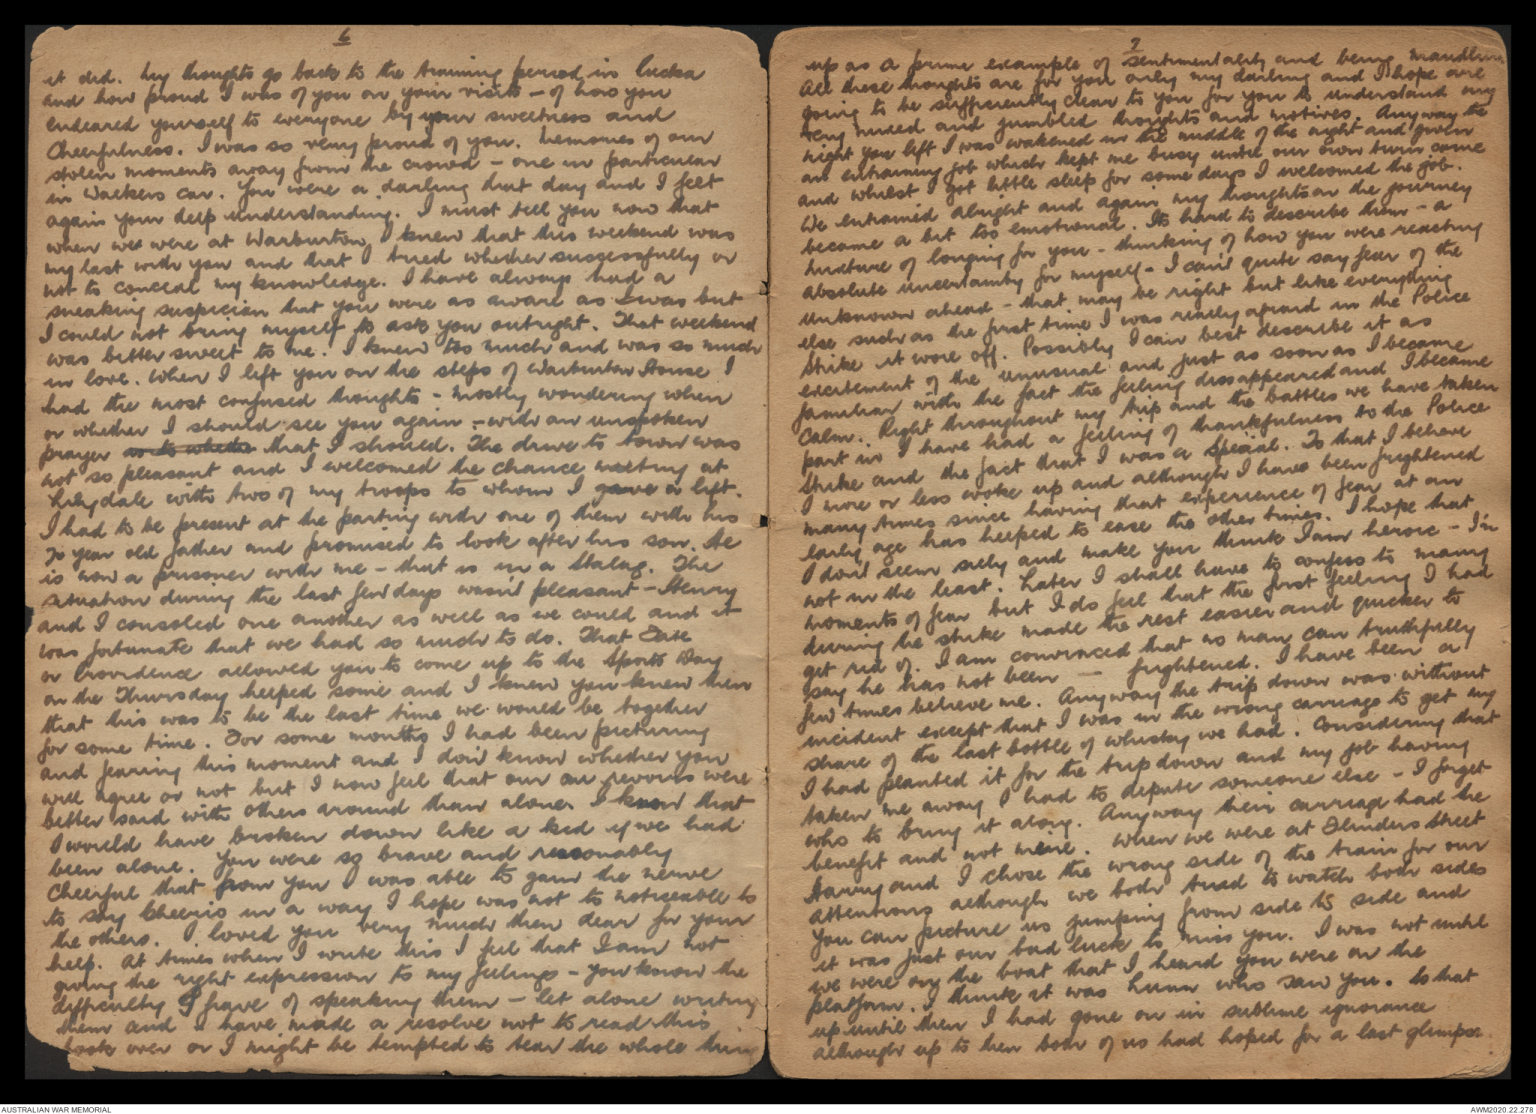 6
it did. My thoughts go back to the training period in Pucka
and how proud I was of you on your visits - of how you
endeared yourself to everyone by your sweetness and
Cheerfulness. I was so very proud of you. Memories of our
stolen moments away from the crowd - one in particular
in Walkers car. You were a darling that day and I felt
again your deep understanding. I must tell you now that
when we were at Warburton, I knew that this weekend was
my last with you and that I tried whether successfully or
not to conceal my knowledge. I have always had a
sneaking suspicion that you were as aware as I was but
I could not bring myself to ask you outright. That weekend
was bitter sweet to me. I knew too much and was so much
in love. When I left you on the steps of Warburton House I
had the most confused thoughts - mostly wondering when
or whether I should see you again - with an unspoken
prayer as to whether that I should. The drive to town was
not so pleasant and I welcomed the chance meeting at
Lilydale with two of my troops to whom I gave a lift.
I had to be present at the parting with one of them with his
70 year old father and promised to look after his son. He
is now a prisoner with me - that is in a Stalag. The
situation during the last few days wasn't pleasant - Henry
and I consoled one another as well as we could and it
was fortunate that we had so much to do. That Fate
or Providence allowed you to come up to the Sports Day
on the Thursday helped some and I knew you knew then
that this was to be the last time we would be together
for some time. For some months I had been picturing
and fearing this moment and I don't know whether you
will agree or not but I now feel that our au revoirs were
better said with others around than alone. I know that
I would have broken down like a kid if we had
been alone. You were so brave and reasonably
cheerful that from you I was able to gain the nerve
to say Cheerio in a way I hope was not to noticeable to
the others. I loved you very much then dear for your
help. At times when I write this I feel that I am not
giving the right expression to my feelings - you know the
difficulty I have of speaking them - let alone writing
them and I have made a resolve not to read this
book over or I might be tempted to tear the whole thing
7
up as a prime example of sentimentality and being maudlin.
All these thoughts are for you only my darling and I hope are
going to be sufficiently clear to you for you to understand my
very mixed and jumbled thoughts and motives. Anyway the
night you left I was wakened in the middle of the night and given
an entraining job which kept me busy until our own turn came
and whilst I got little sleep for some days I welcomed the job.
We entrained alright and again my thoughts on the journey
became a bit too emotional. Its hard to describe them - a
mixture of longing for you - thinking of how you were reacting
absolute uncertainty for myself - I can't quite say fear of the
unknown ahead - that may be right but like everything
else such as the first time I was really afraid in the Police
Strike it wore off. Possibly I can best describe it as
excitement of the unusual and just as soon as I became
familiar with the fact the feeling dissappeared and I became
calm. Right throughout my trip and the battles we have taken
part in I have had a feeling of thankfulness to the Police
Strike and the fact that I was a Special. To that I believe
I more or less woke up and although I have been frightened
many times since having that experience of fear at an
early age has helped to ease the other times. I hope that
I don't seem silly and make you think I am heroic - I'm
not in the least. Later I shall have to confess to many
moments of fear but I do feel that the first feeling I had
during the strike made the rest easier and quicker to
get rid of. I am convinced that no man can truthfully
say he has not been — frightened. I have been a
few times believe me. Anyway the trip down was without
incident except that I was in the wrong carriage to get my
share of the last bottle of whisky we had. Considering that
I had planted it for the trip down and my job having
taken me away I had to depute someone else - I forget
who to bring it along. Anyway their carriage had the
benefit and not mine. When we were at Flinders Street
Harry and I chose the wrong side of the train for our
attentions although we both tried to watch both sides
You can picture us jumping from side to side and
it was just our bad luck to miss you. I was not until
we were on the boat that I heard you were on the
platform. I think it was Lunn who saw you. So that
up until then I had gone on in sublime ignorance
although up to then both of us had hoped for a last glimpse
AUSTRALIAN WAR MEMORIAL
AWM2020.22.278